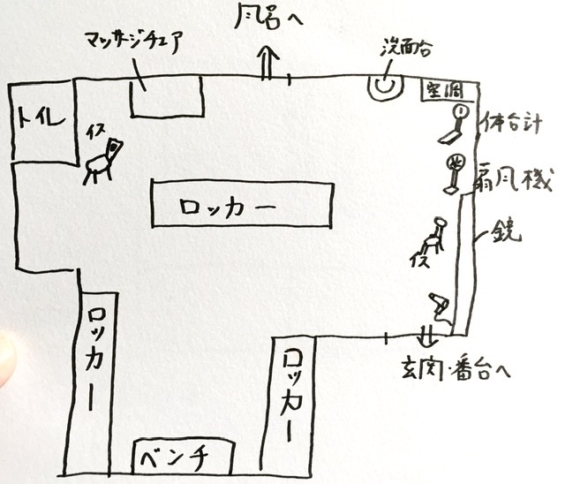 風呂へ
マッサージチェア
洗面台
空調
トイレ
イス
体合計
扇風機
ロッカー
鏡
イス
ロッカー
ロッカー
玄関・番台へ
ベンチ